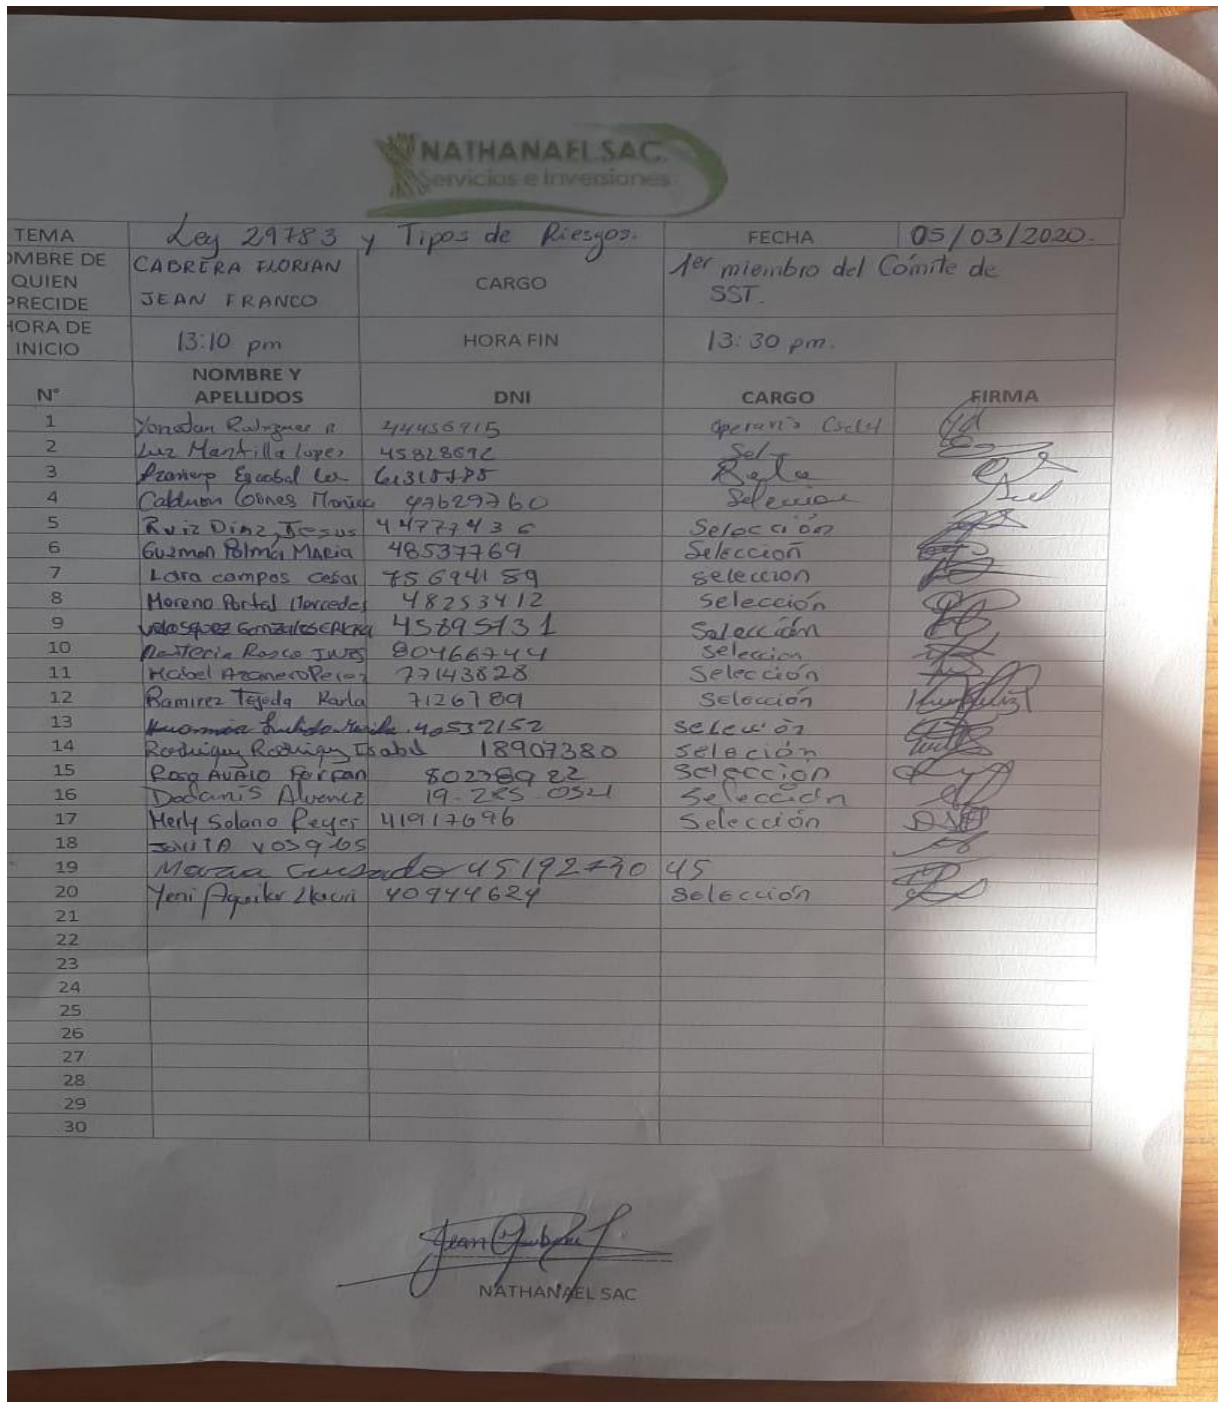 NATHANAEL SAC.
Servicios e Inversiones
TEMA Ley 29783 y Tipos de Riesgos. FECHA 05/03/2020.
OMBRE DE QUIEN PRECIDE CABRERA FLORIAN JEAN FRANCO CARGO 1er miembro del Cómite de SST.
HORA DE INICIO 13:10 pm HORA FIN 13:30 pm.
N° NOMBRE Y APELLIDOS DNI CARGO FIRMA
1 44456915 operario
2 Luz Mantilla Lopez Sel
3 Escobal
4 47629760 Seleccion
5 Ruiz Diaz, Jesus 44777436 Selección
6 Guzman Polma Maria 48537769 Seleccion
7 Lara campos cesar 75694159 seleccion
8 Moreno Portal Mercedes 48253412 Selección
9 45895731 Selección
10 80466744 Seleccion
11 77143828 Selección
12 Ramirez Tejeda Karla 7126789 Selección
13 40532152 selección
14 Isabel 18907380 seleción
15 Rosa 80278922 selección
16 Selección
17 Merly Solano Reyes 41917696 Selección
18
19 45192770 45
20 Yeni 40944624 Selección
21
22
23
24
25
26
27
28
29
30
NATHANAEL SAC